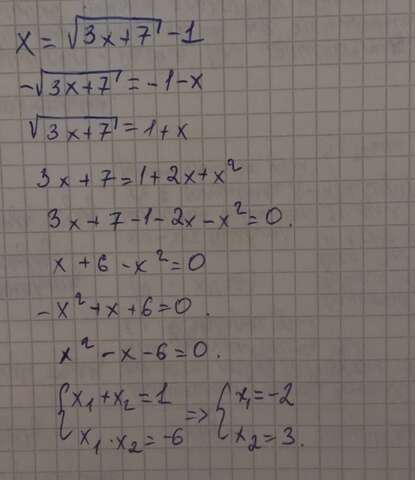 x = √(3x+7) -1
-√(3x+7) = -1-x
√(3x+7) = 1+x
3x+7=1+2x+x²
3x+7-1-2x-x²=0.
x+6-x²=0
-x²+x+6=0.
x²-x-6=0.
{x₁+x₂=1 => {x₁=-2
x₁·x₂=-6 x₂=3.